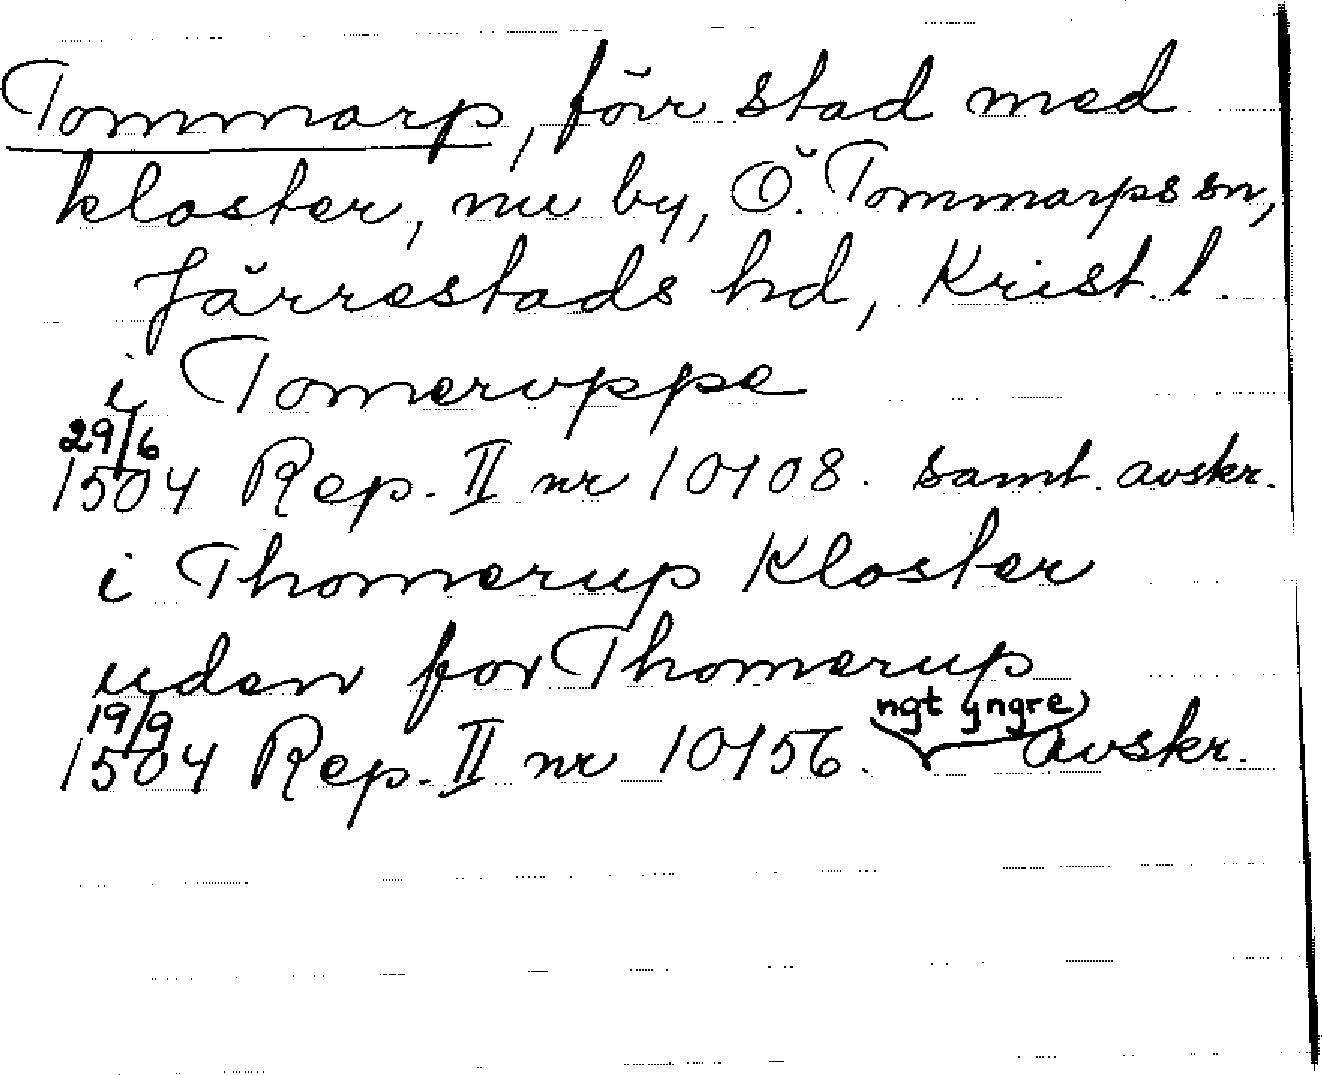 Tommarp, förr stad med
kloster, nu by, Ö. Tommarps sn,
Järrestads hd, Krist. l.
i Tomeruppe
29/6
1504 Rep. II nr 10108. samt. avskr.
i Thomerup Kloster
uden for Thomerup
19/9 ngt yngre
1504 Rep. II nr 10156. avskr.